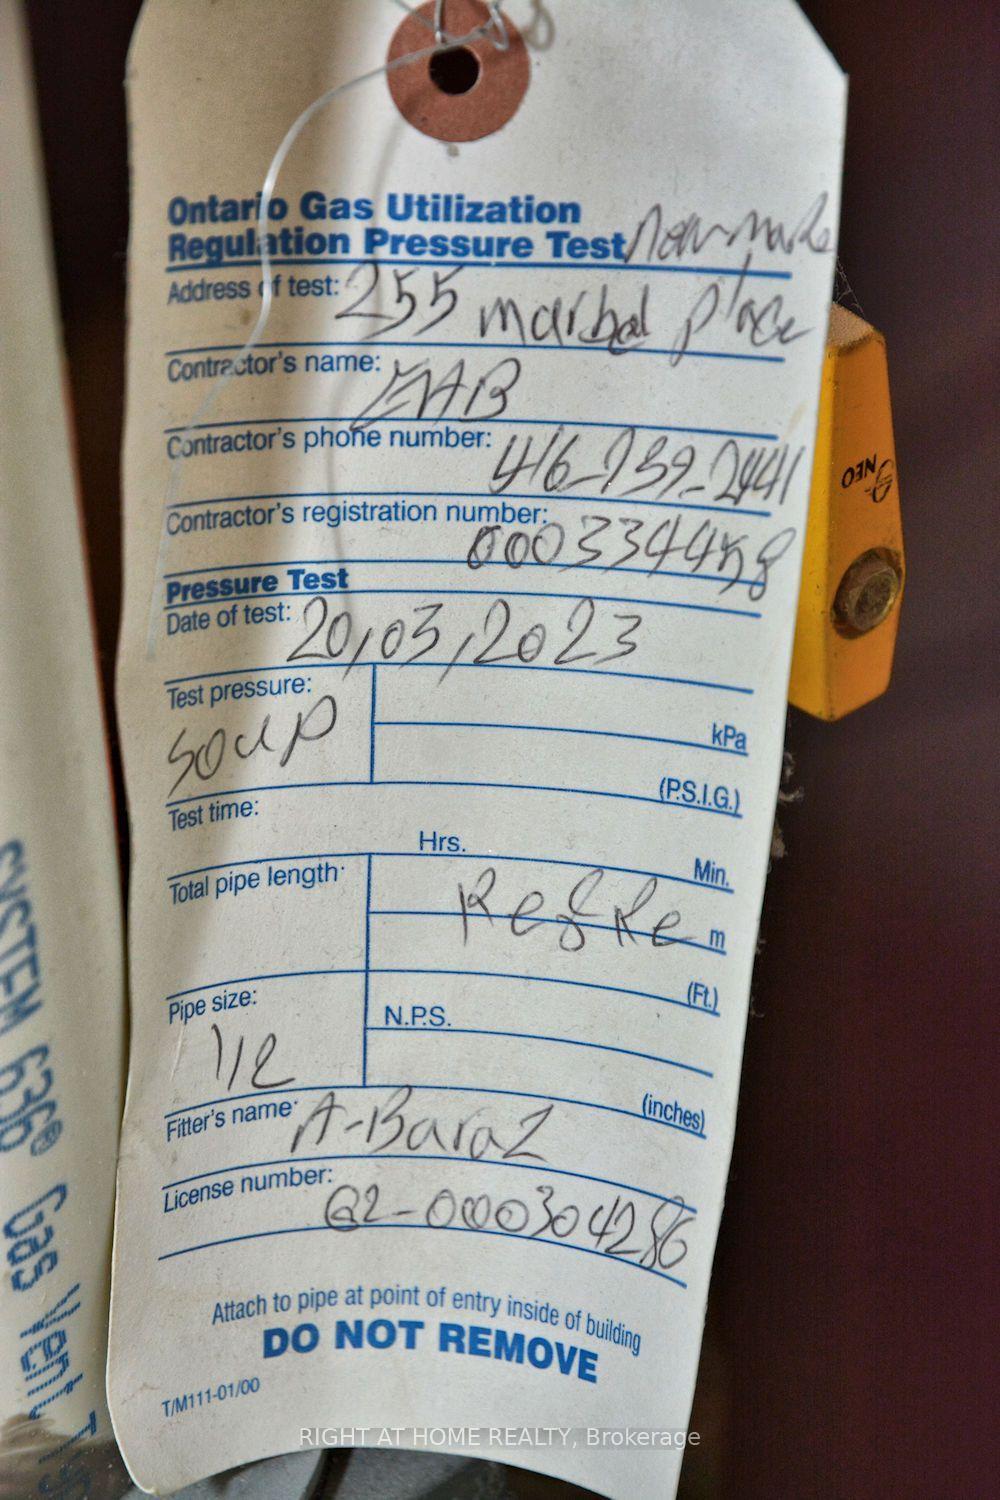 Ontario Gas Utilization
Regulation Pressure Test
Address of test: 255 marbal place
Contractor's name: EAB
Contractor's phone number:
416-739-2441
Contractor's registration number:
000334458
Pressure Test
Date of test: 20,03,2023
Test pressure:
soup
kPa
(P.S.I.G.)
Test time:
Hrs.
Min.
Total pipe length:
m
(Ft.)
Pipe size:
1/2
N.P.S.
(inches)
Fitter's name: A-Baraz
License number:
G2-000304286
Attach to pipe at point of entry inside of building
DO NOT REMOVE
T/M111-01/00
NEO
SYSTEM 636® Gas Vent
RIGHT AT HOME REALTY, Brokerage